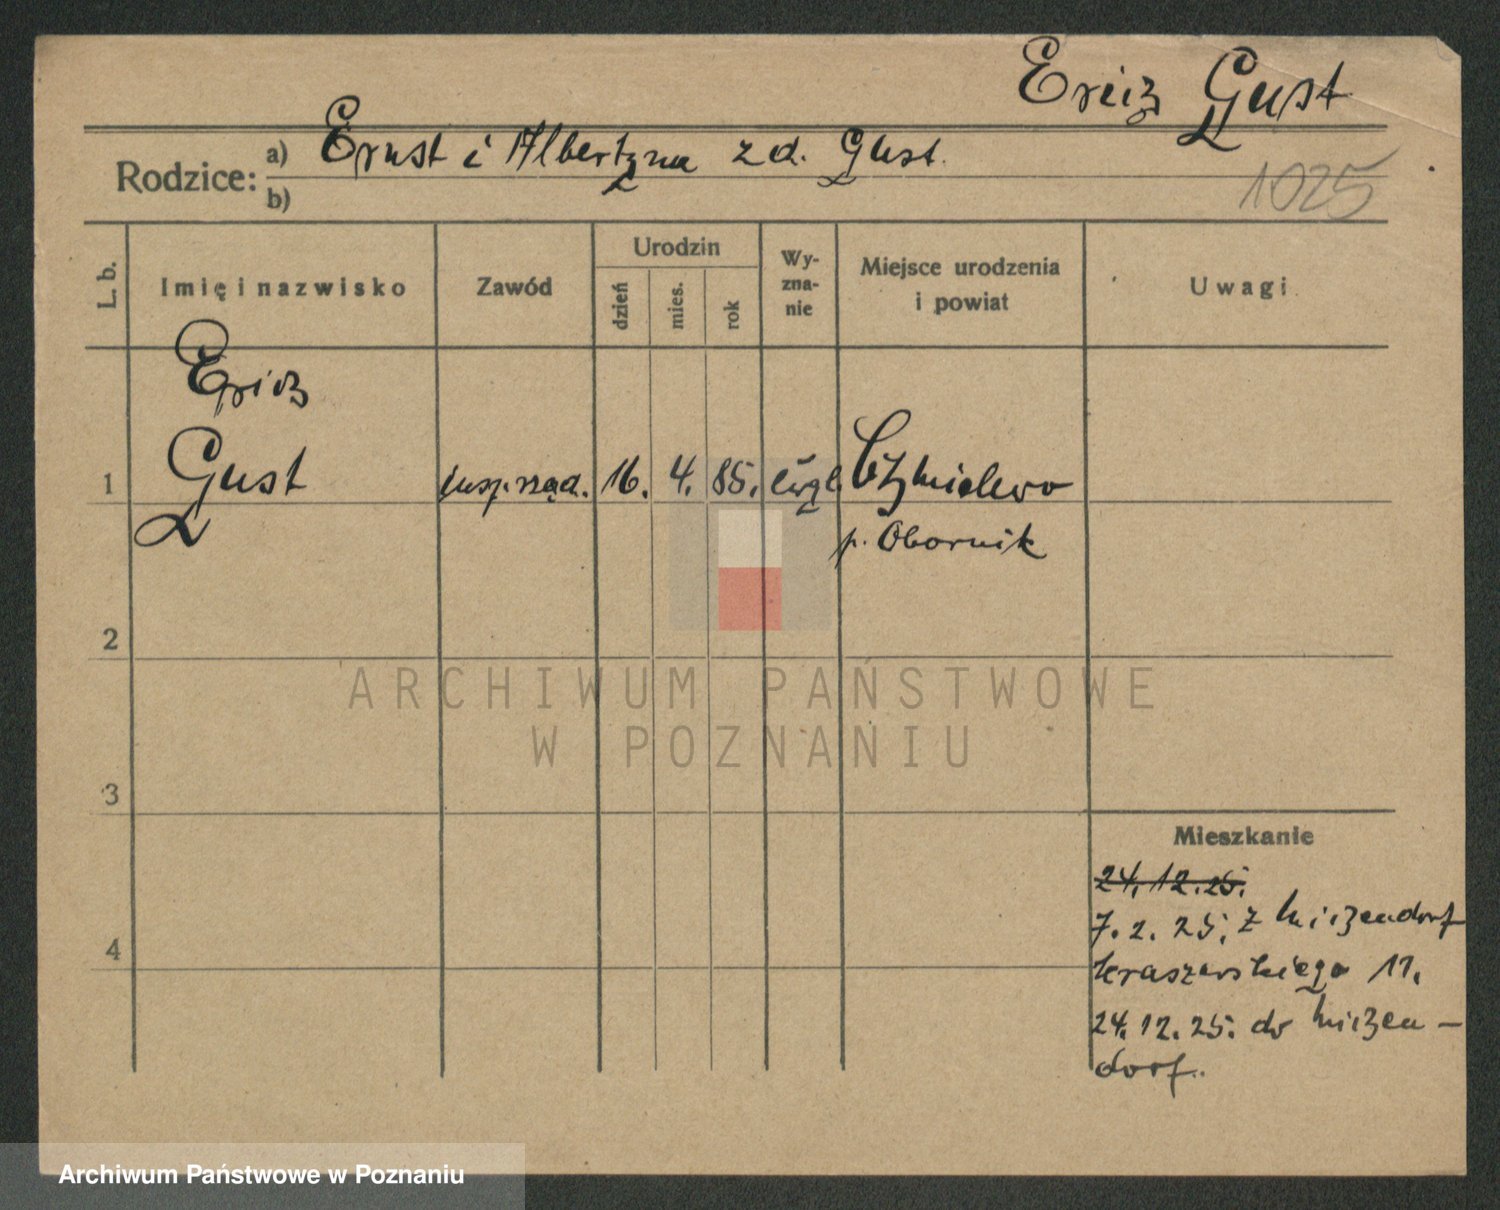 Erich Gust
Rodzice: a) Ernst i Albertyna z d. Gust.
b)
1025
L. b.
Imię i nazwisko
Zawód
Urodzin
dzień
mies.
rok
Wy-
zna-
nie
Miejsce urodzenia
i powiat
Uwagi
Erich
1 Gust insp. rząd. 16. 4. 85. ewgl. Chmielewo
p. Obornik
2
3
4
ARCHIWUM PAŃSTWOWE
W POZNANIU
Mieszkanie
24. 12. 25.
7. 2. 25. z
Kraszewskiego 11.
24. 12. 25. do
dorf.
Archiwum Państwowe w Poznaniu